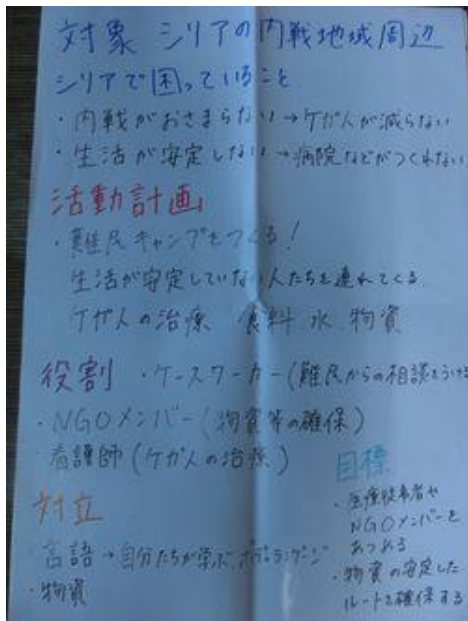 対象 シリアの内戦地域周辺
シリアで困っていること
・内戦がおさまらない→ケガ人が減らない
・生活が安定しない→病院などがつくれない
活動計画
・難民キャンプをつくる!
生活が安定していない人たちを連れてくる
ケガ人の治療 食料 水 物資
役割 ・ケースワーカー(難民からの相談をうける
・NGOメンバー(物資等の確保)
・看護師(ケガ人の治療)
対立
・言語→自分たちが学ぶ ボディランゲージ
・物資
目標
・医療従事者や
NGOメンバーを
あつめる
・物資の安定した
ルートを確保する